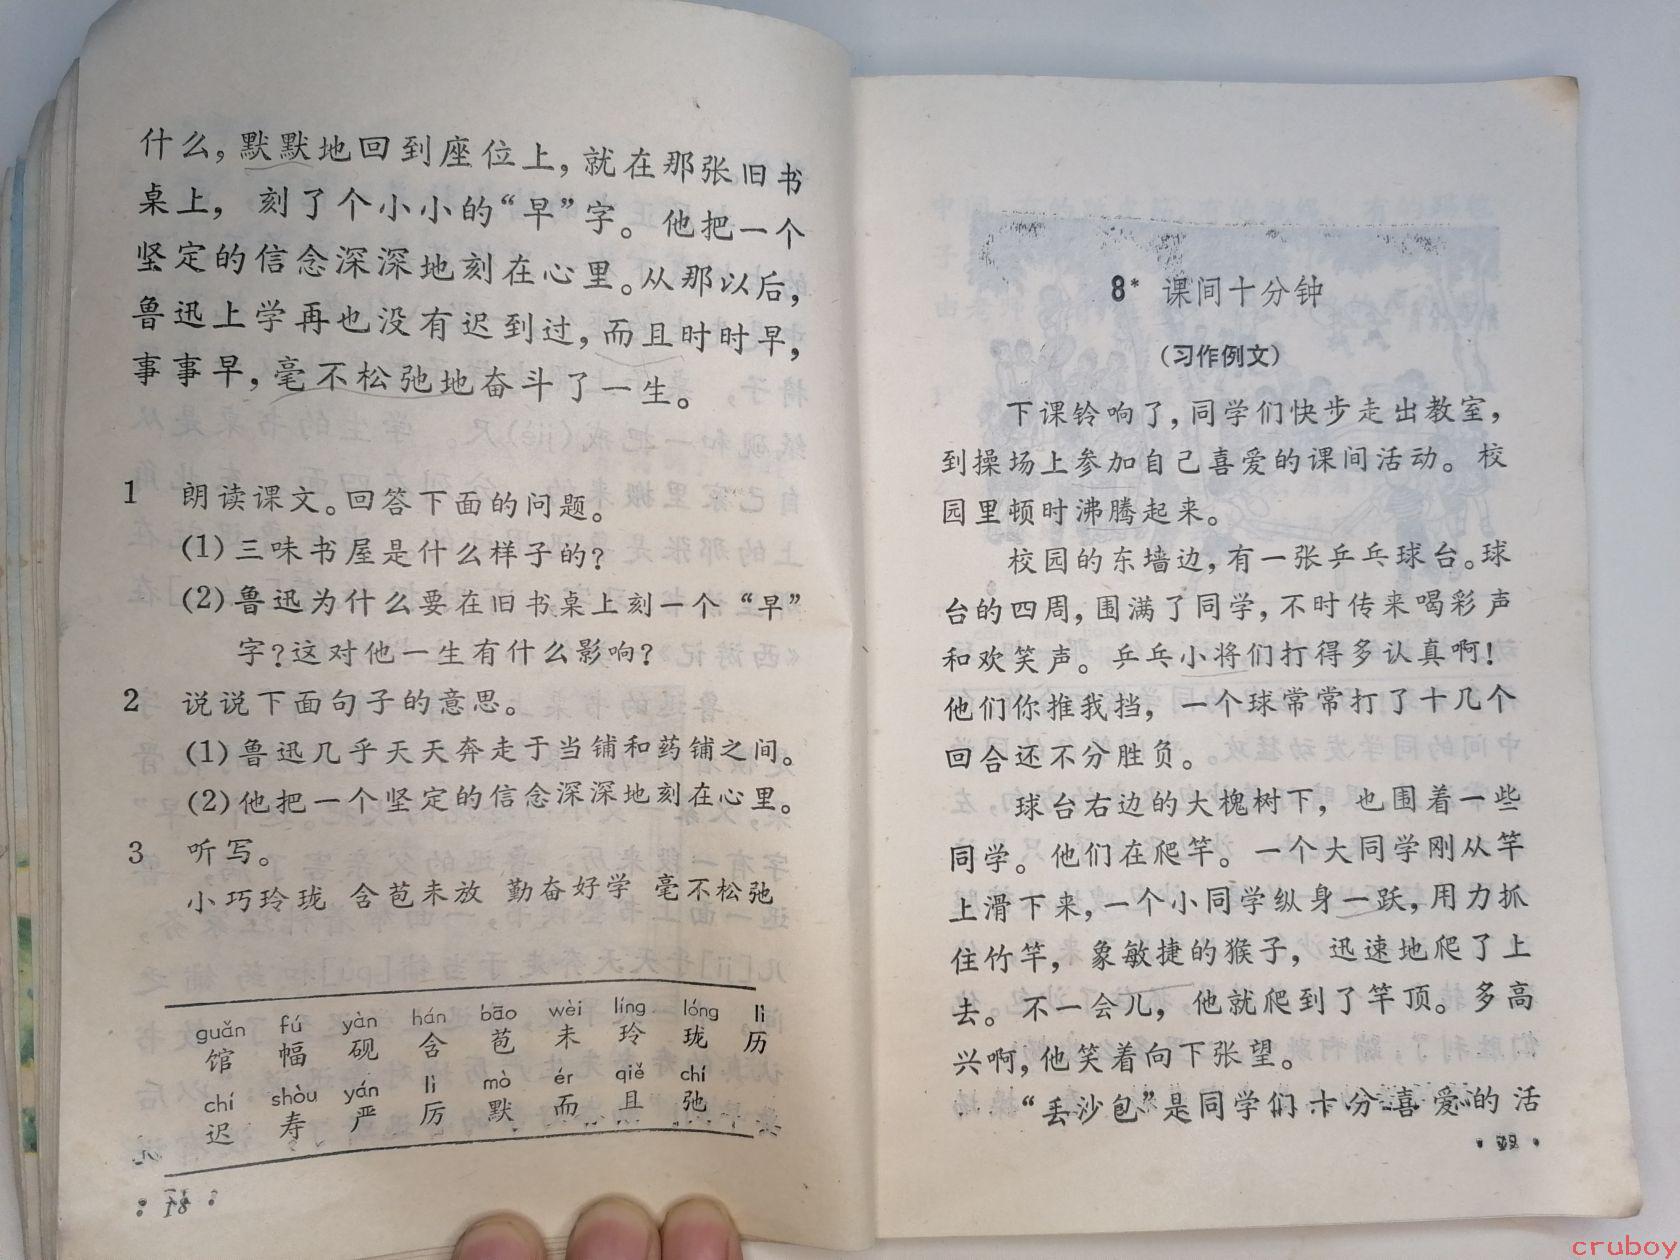 什么，默默地回到座位上，就在那张旧书
桌上，刻了个小小的“早”字。他把一个
坚定的信念深深地刻在心里。从那以后，
鲁迅上学再也没有迟到过，而且时时早，
事事早，毫不松弛地奋斗了一生。
1 朗读课文。回答下面的问题。
(1)三味书屋是什么样子的？
(2)鲁迅为什么要在旧书桌上刻一个“早”
字？这对他一生有什么影响？
2 说说下面句子的意思。
(1)鲁迅几乎天天奔走于当铺和药铺之间。
(2)他把一个坚定的信念深深地刻在心里。
3 听写。
小巧玲珑 含苞未放 勤奋好学 毫不松弛
guǎn fú yàn hán bāo wèi líng lóng lì
馆 幅 砚 含 苞 未 玲 珑 历
chí shòu yán lì mò ér qiě chí
迟 寿 严 厉 默 而 且 弛
8* 课间十分钟
(习作例文)
下课铃响了，同学们快步走出教室，
到操场上参加自己喜爱的课间活动。校
园里顿时沸腾起来。
校园的东墙边，有一张乒乓球台。球
台的四周，围满了同学，不时传来喝彩声
和欢笑声。乒乓小将们打得多认真啊！
他们你推我挡，一个球常常打了十几个
回合还不分胜负。
球台右边的大槐树下，也围着一些
同学。他们在爬竿。一个大同学刚从竿
上滑下来，一个小同学纵身一跃，用力抓
住竹竿，象敏捷的猴子，迅速地爬了上
去。不一会儿，他就爬到了竿顶。多高
兴啊，他笑着向下张望。
“丢沙包”是同学们十分喜爱的活
cruboy